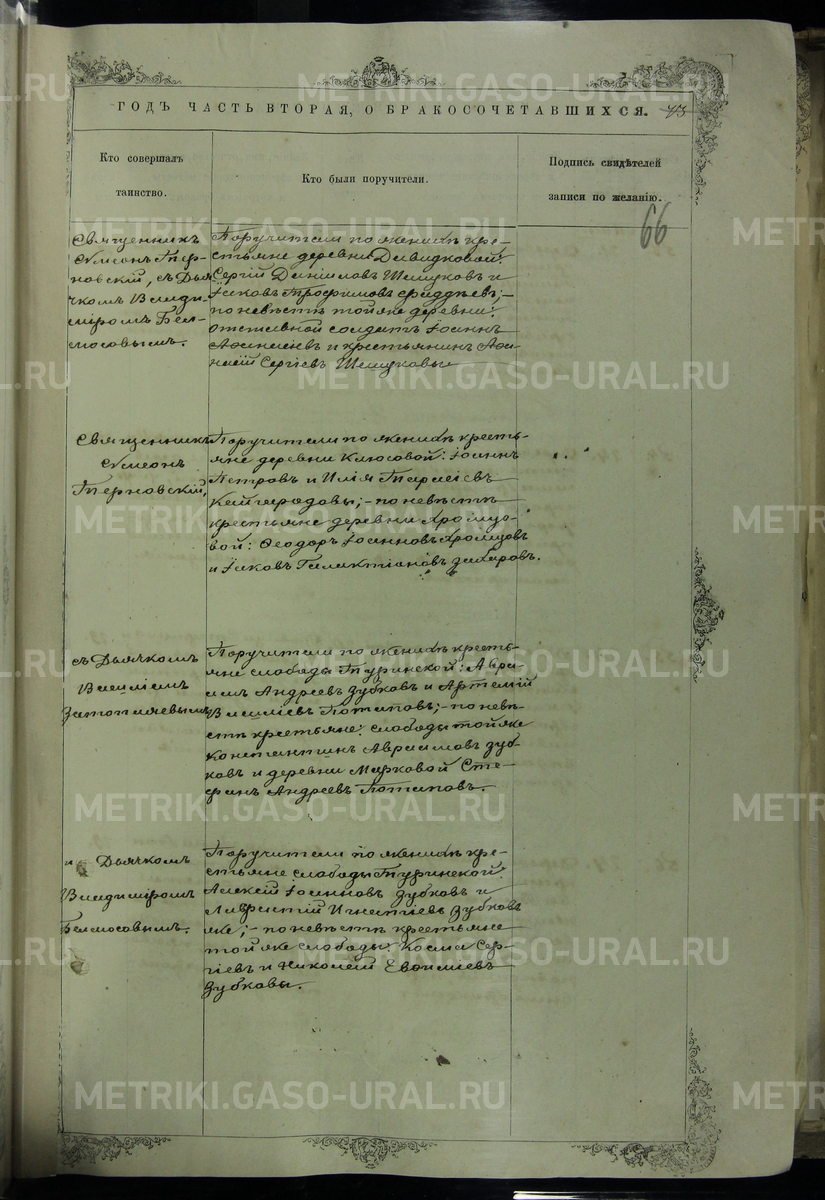 ГОДЪ ЧАСТЬ ВТОРАЯ, О БРАКОСОЧЕТАВШИХСЯ. 43
Кто совершалъ
таинство.
Кто были поручители.
Подпись свидѣтелей
записи по желанію.
66
Священникъ
Сѵмеонъ Тер-
новскій, съ Дья
чкомъ Влади-
міромъ Бѣл-
лосовымъ.
Поручители по женихѣ кре-
стьяне деревни Давидковой:
Сергій Даніиловъ Шешуковъ и
Іаковъ Трофимовъ
по невѣстѣ той же деревни:
отставной солдатъ Іоаннъ
и крестьянинъ Аѳа-
насій Сергіевъ Шешуковы
Священникъ
Сѵмеонъ
Терновскій,
Поручители по женихѣ кресть-
яне деревни Клюсовой: Іоаннъ
Петровъ и Илія Тарасіевъ
по невѣстѣ
крестьяне деревни Хромцо-
вой: Ѳеодоръ Іоанновъ Хромцовъ
и Іаковъ Галактіоновъ Захаровъ.
съ Дьячкомъ
Василіемъ
Затопляевымъ
Поручители по женихѣ кресть-
яне слободы Туринской: Авра-
амъ Андреевъ Зубковъ и Артемій
Василіевъ Потаповъ; - по невѣ-
стѣ крестьяне: слободы той же
Константинъ Авраамовъ Зуб-
ковъ и деревни Марковой Сте-
фанъ Андреевъ Потаповъ.
и Дьячкомъ
Владиміромъ
Поручители по женихѣ кре-
стьяне слободы Туринской:
Алексій Іоанновъ Зубковъ и
Лаврентій Игнатіевъ Зубковъ
же; - по невѣстѣ крестьяне
той же слободы: Косма Сер-
гіевъ и Николай
Зубковы.
METRIKI.GASO-URAL.RU